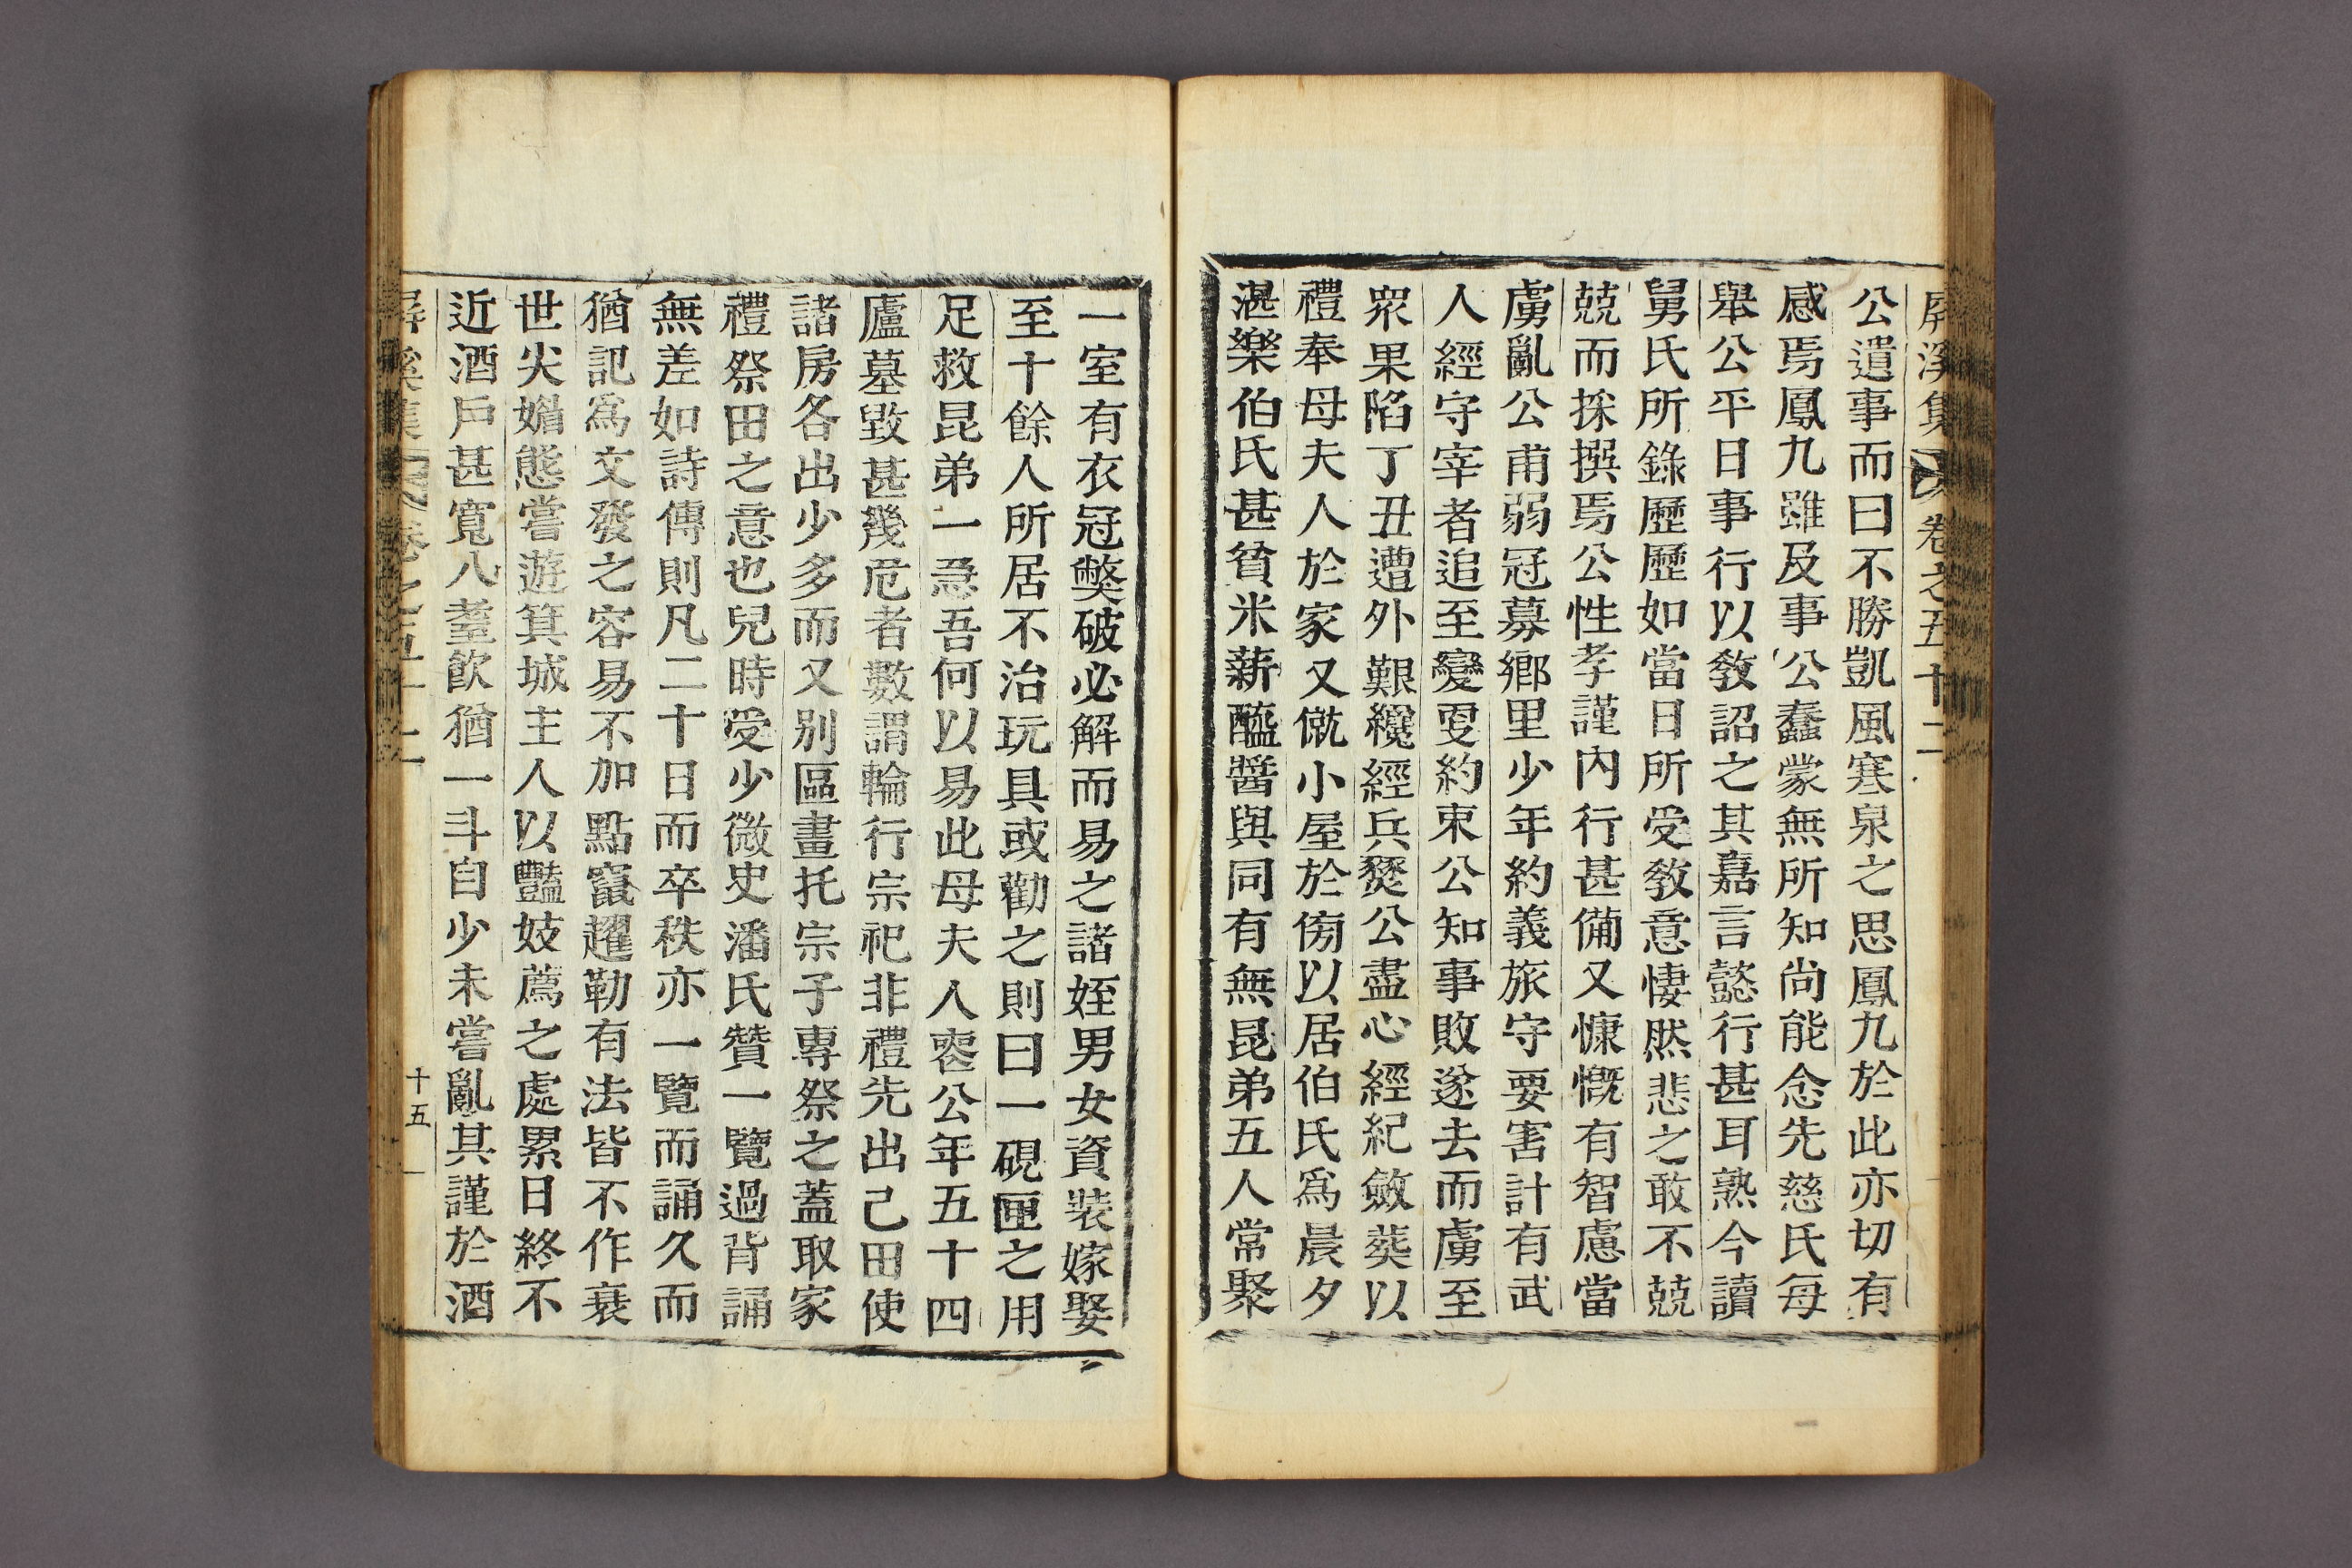 屛溪集 卷之五十二
公遺事而曰不勝凱風寒泉之思鳳九於此亦切有
感焉鳳九雖及事公蠢蒙無所知尚能念先慈氏每
舉公平日事行以敎詔之其嘉言懿行甚耳熟今讀
舅氏所錄歷歷如當日所受敎意悽然悲之敢不兢
兢而採撰焉公性孝謹內行甚備又慷慨有智慮當
虜亂公甫弱冠募鄉里少年約義旅守要害計有武
人經守宰者追至變更約束公知事敗遂去而虜至
衆果陷丁丑遭外艱纔經兵燹公盡心經紀斂葬以
禮奉母夫人於家又僦小屋於傍以居伯氏爲晨夕
湛樂伯氏甚貧米薪醯醬與同有無昆弟五人常聚
一室有衣冠獘破必解而易之諸姪男女資裝嫁娶
至十餘人所居不治玩具或勸之則曰一硯匣之用
足救昆弟一急吾何以易此母夫人喪公年五十四
廬墓毀甚幾危者數謂輪行宗祀非禮先出己田使
諸房各出少多而又別區畫托宗子專祭之蓋取家
禮祭田之意也兒時受少微史潘氏贊一覽過背誦
無差如詩傳則凡二十日而卒秩亦一覽而誦久而
猶記爲文發之容易不加點竄趯勒有法皆不作衰
世尖媚態嘗遊箕城主人以豔妓薦之處累日終不
近酒戶甚寬八耋飮猶一斗自少未嘗亂其謹於酒
屛溪集 卷之五十二 十五